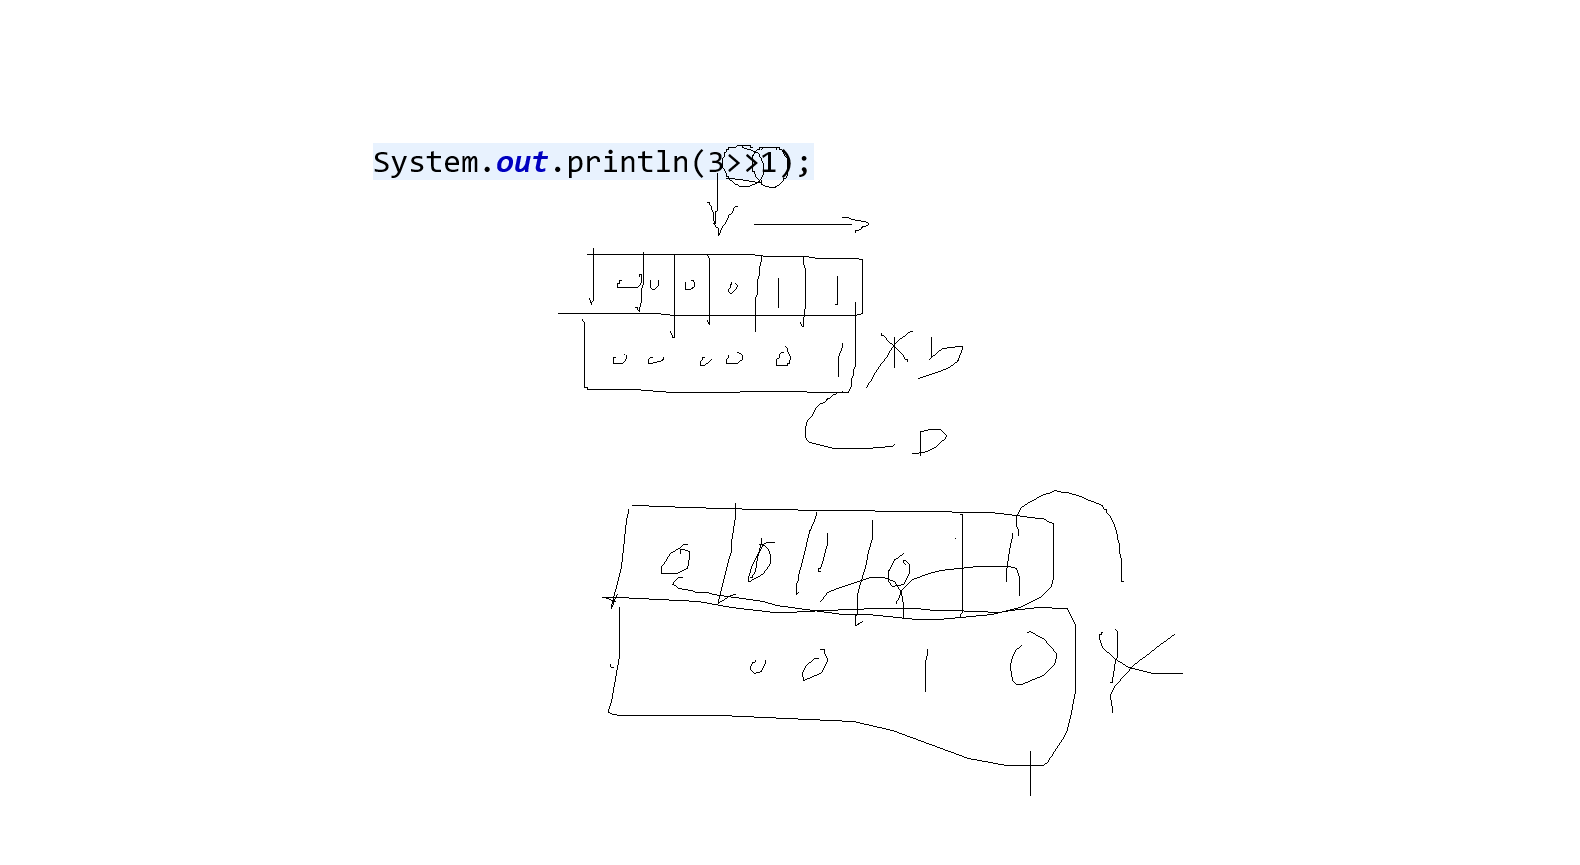 System.out.println(3>>1);
0 0 0 0 1 1
0 0 0 0 0 1
b
D
0 0 1 0 1
0 0 1 0